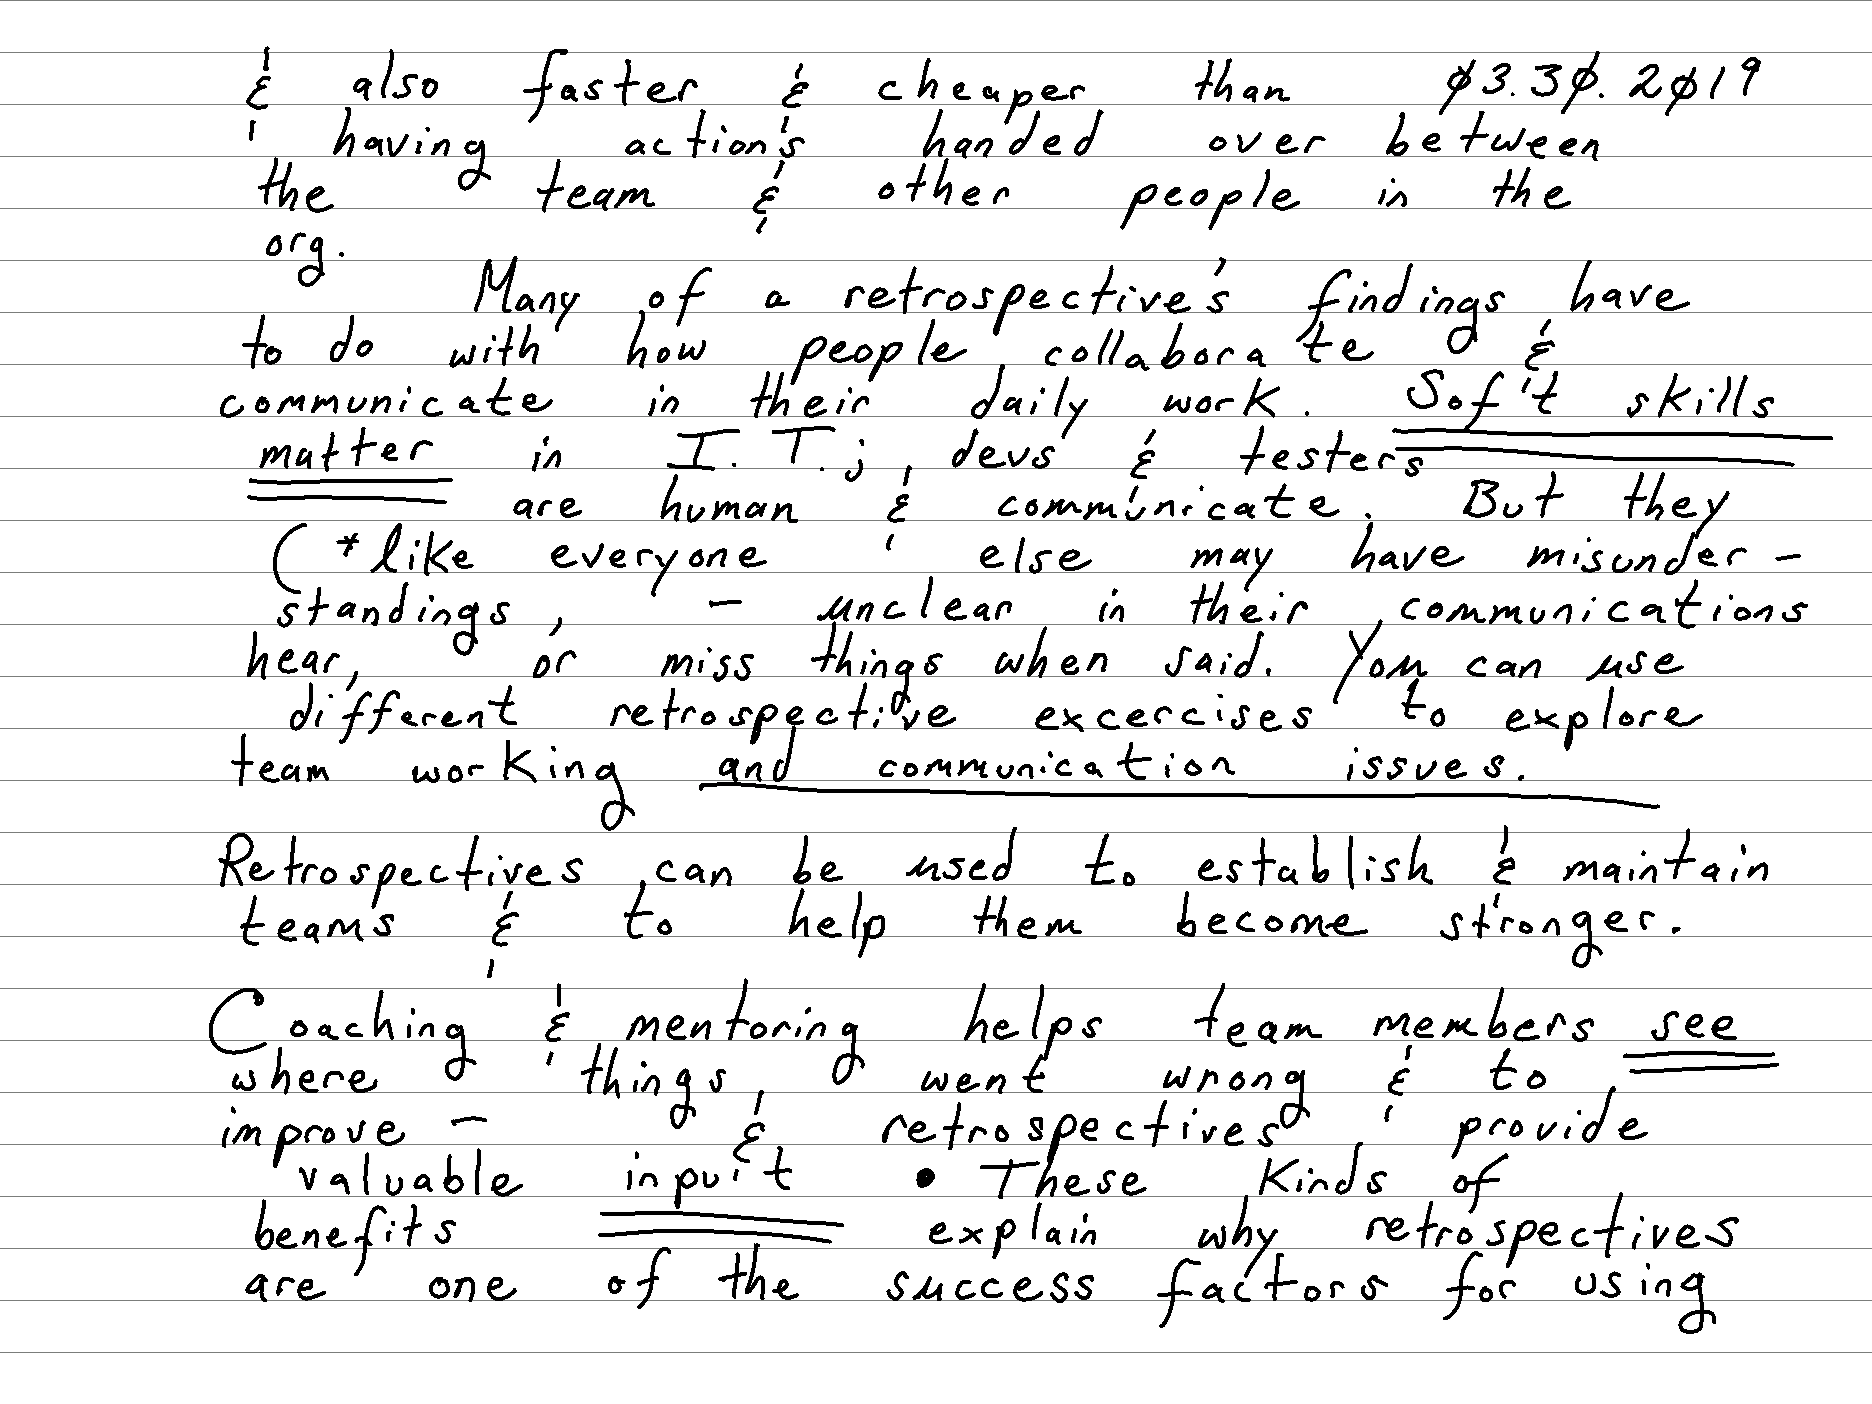 & also faster & cheaper than 03.30.2019
having actions handed over between
the team & other people in the
org.
Many of a retrospective's findings have
to do with how people collaborate &
communicate in their daily work. Soft skills
matter in I.T.; devs & testers
are human & communicate. But they
(*like everyone else may have misunder-
standings, - unclear in their communications
hear, or miss things when said. You can use
different retrospective excercises to explore
team working and communication issues.
Retrospectives can be used to establish & maintain
teams & to help them become stronger.
Coaching & mentoring helps team members see
where things went wrong & to
improve - & retrospectives provide
valuable input • These kinds of
benefits explain why retrospectives
are one of the success factors for using